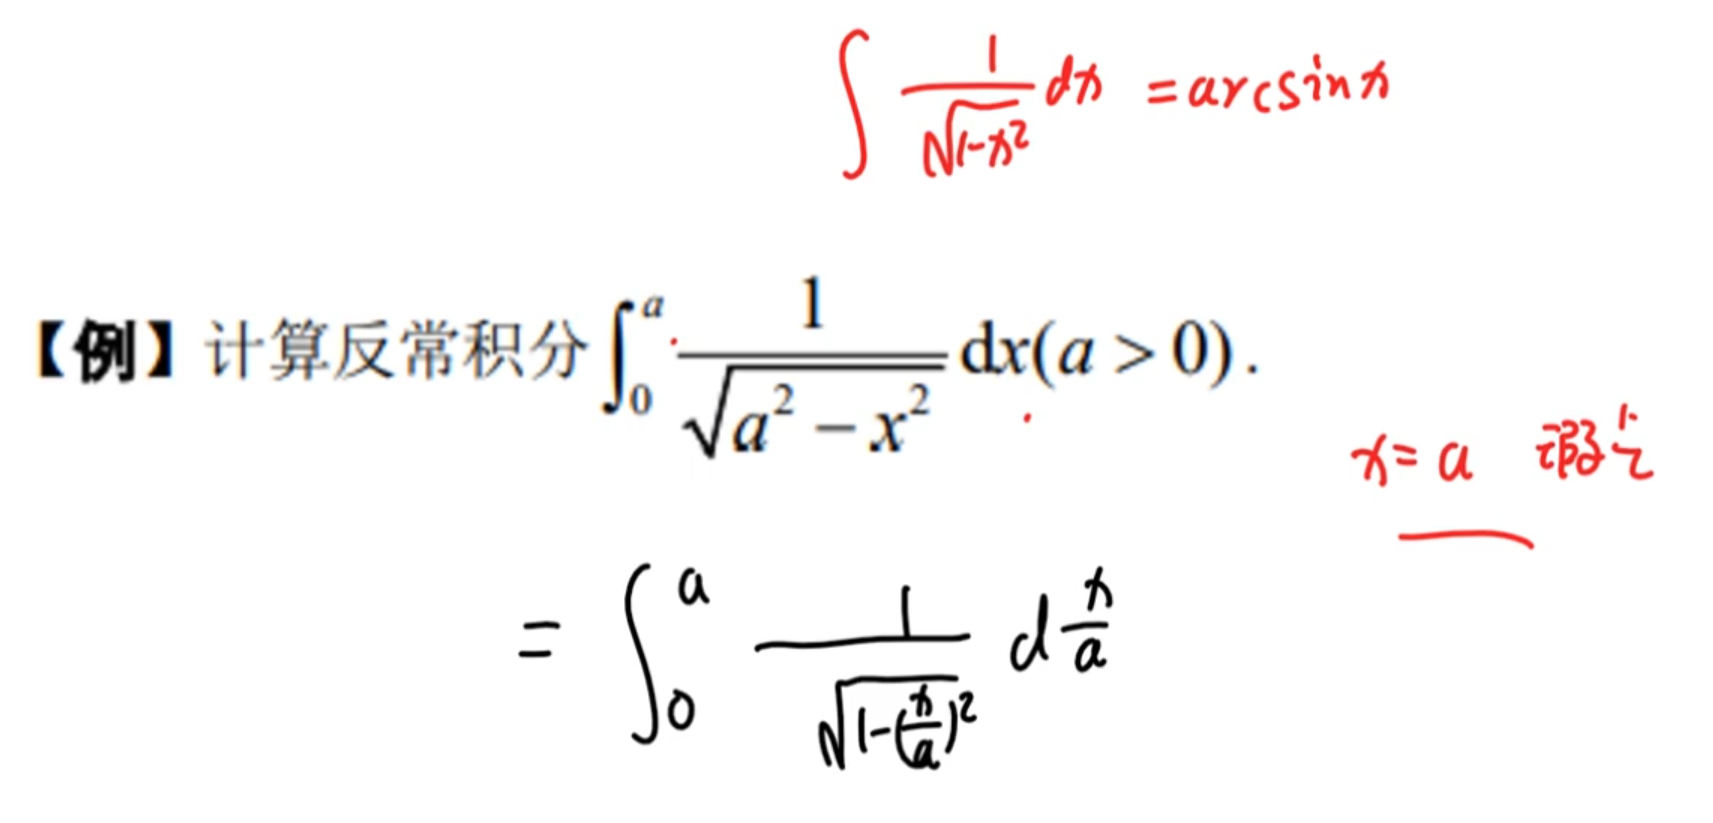 ∫ 1/√(1-x²) dx = arcsin x
【例】计算反常积分 ∫₀ᵃ 1/√(a² − x²) dx(a > 0).
x = a 瑕点
= ∫₀ᵃ 1/√(1-(x/a)²) d x/a